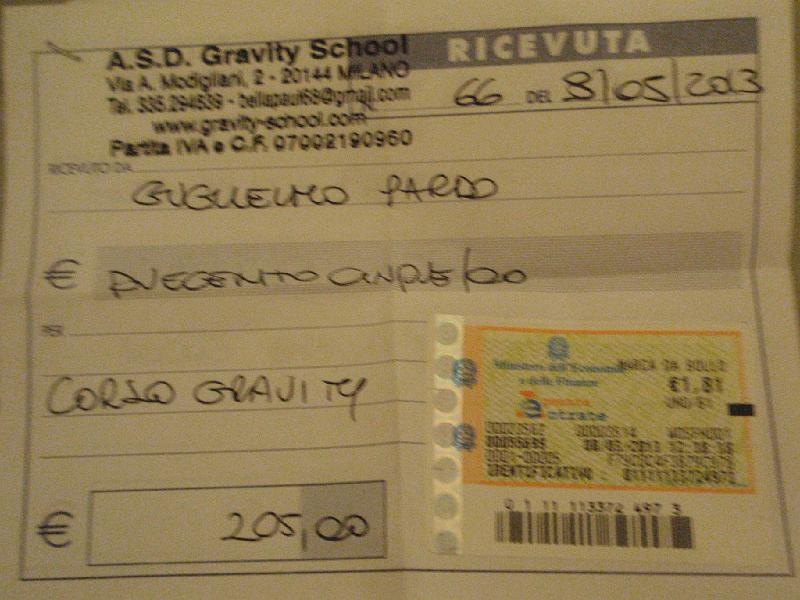 A.S.D. Gravity School
Via A. Modigliani, 2 - 20144 MILANO
Tel. 335.294539 - bellapaul68@gmail.com
www.gravity-school.com
Partita IVA e C.F. 07002190960
RICEVUTA
66 DEL 8/05/2013
RICEVUTO DA
GUGLIELMO PARDO
€ DUECENTOCINQUE/00
PER
CORSO GRAVITY
€ 205,00
Ministero dell'Economia
e delle Finanze
MARCA DA BOLLO
€1,81
UNO/81
Entrate
IDENTIFICATIVO
0 1 11 113372 497 3